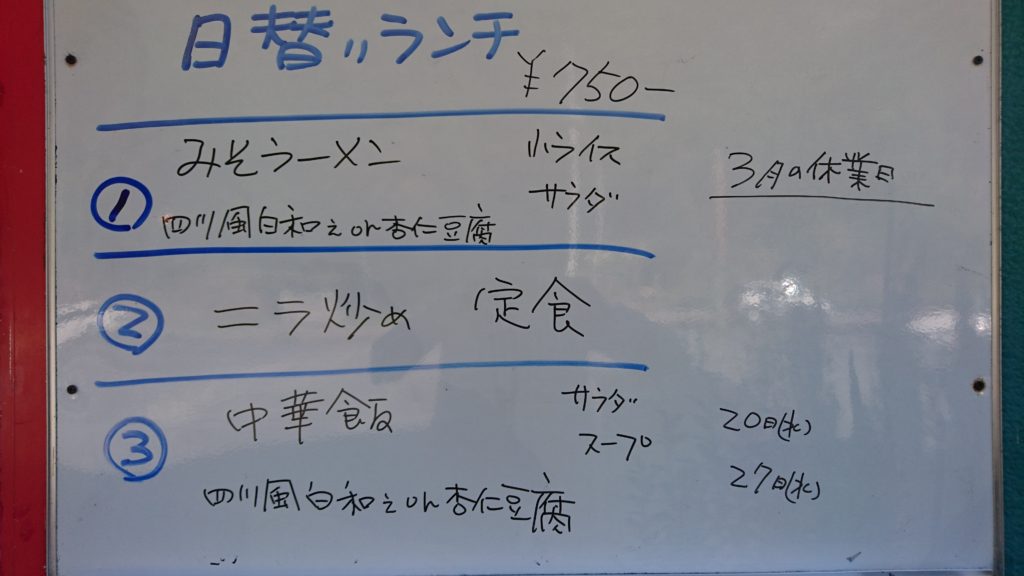 日替りランチ
¥750-
① みそラーメン 小ライス
サラダ
四川風白和えor杏仁豆腐
② ニラ炒め 定食
③ 中華飯 サラダ
スープ
四川風白和えor杏仁豆腐
3月の休業日
20日(水)
27日(水)